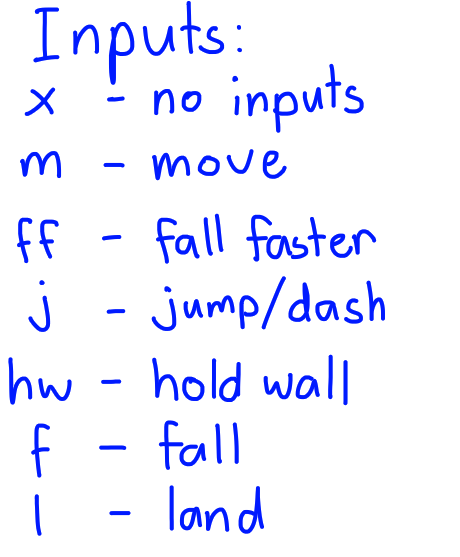 Inputs:
x - no inputs
m - move
ff - fall faster
j - jump/dash
hw - hold wall
f - fall
l - land